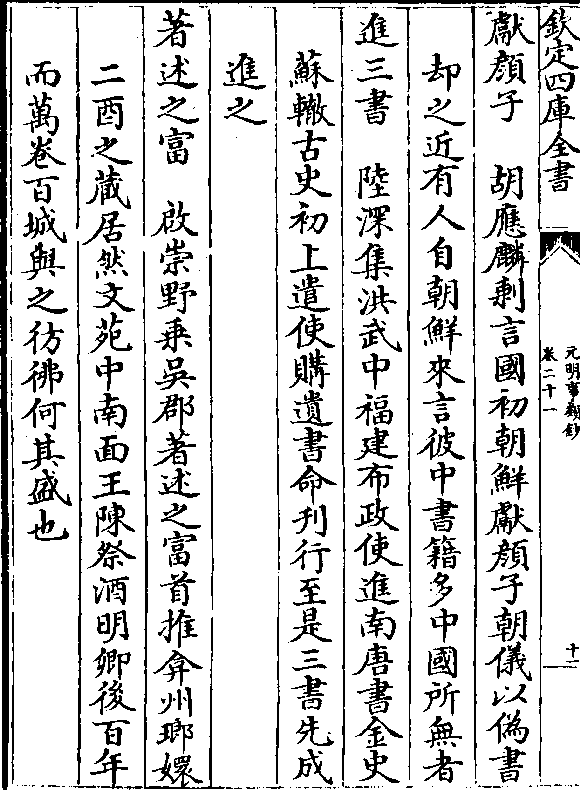 欽定四庫全書
元明事類鈔
卷二十一
十一
獻顔子　胡應麟剩言國初朝鮮獻顔子朝儀以偽書
却之近有人自朝鮮來言彼中書籍多中國所無者
進三書　陸深集洪武中福建布政使進南唐書金史
蘇轍古史初上遣使購遺書命刊行至是三書先成
進之
著述之富　啟崇野乘吳郡著述之富首推弇州瑯嬛
二酉之藏居然文苑中南面王陳祭酒明卿後百年
而萬卷百城與之彷彿何其盛也